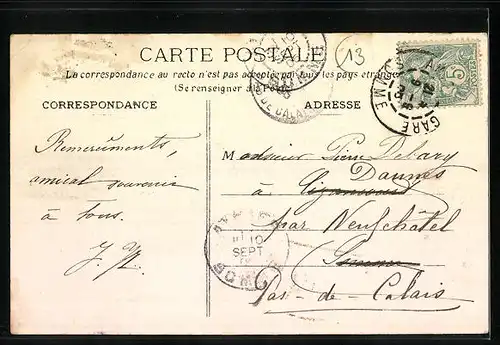 CARTE POSTALE
13
La correspondance au recto n'est pas acceptée par tous les pays étrangers
(Se renseigner à la Poste)
CORRESPONDANCE
ADRESSE
Remerciements,
amical souvenir
à tous.
Monsieur Pierre Delary
Dannes
à
par Neufchâtel
Somme
Pas-de-Calais
GARE
SOMME
5
DE CALAIS
10
SEPT
SOMME